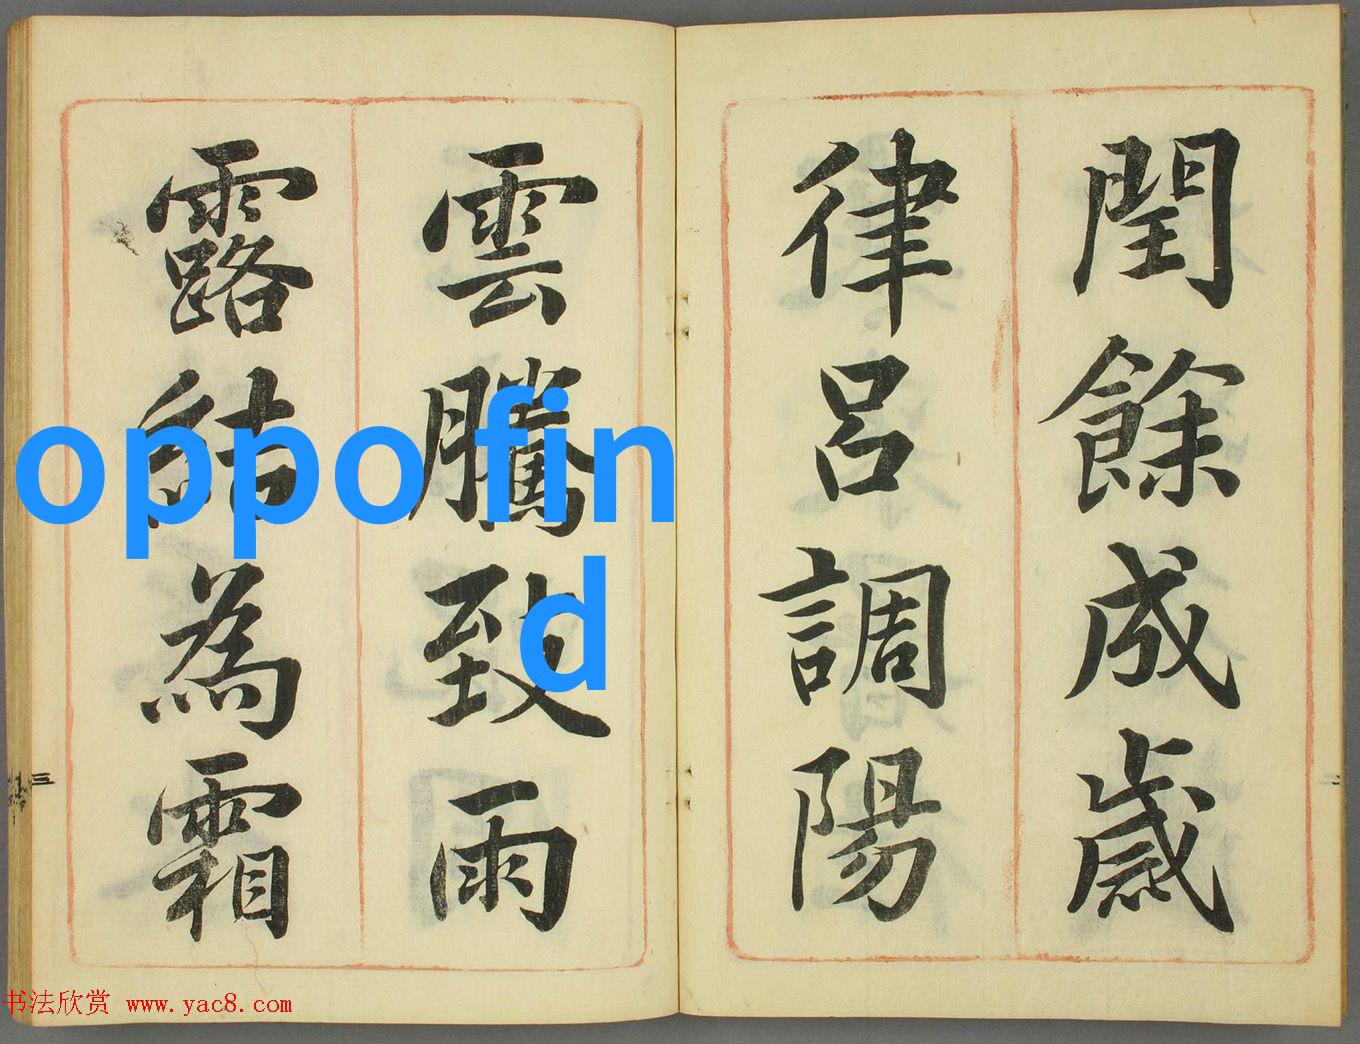 閏餘成歲
律呂調陽
雲騰致雨
露結為霜
oppo fin
d
三
二
书法欣赏 www.yac8.com